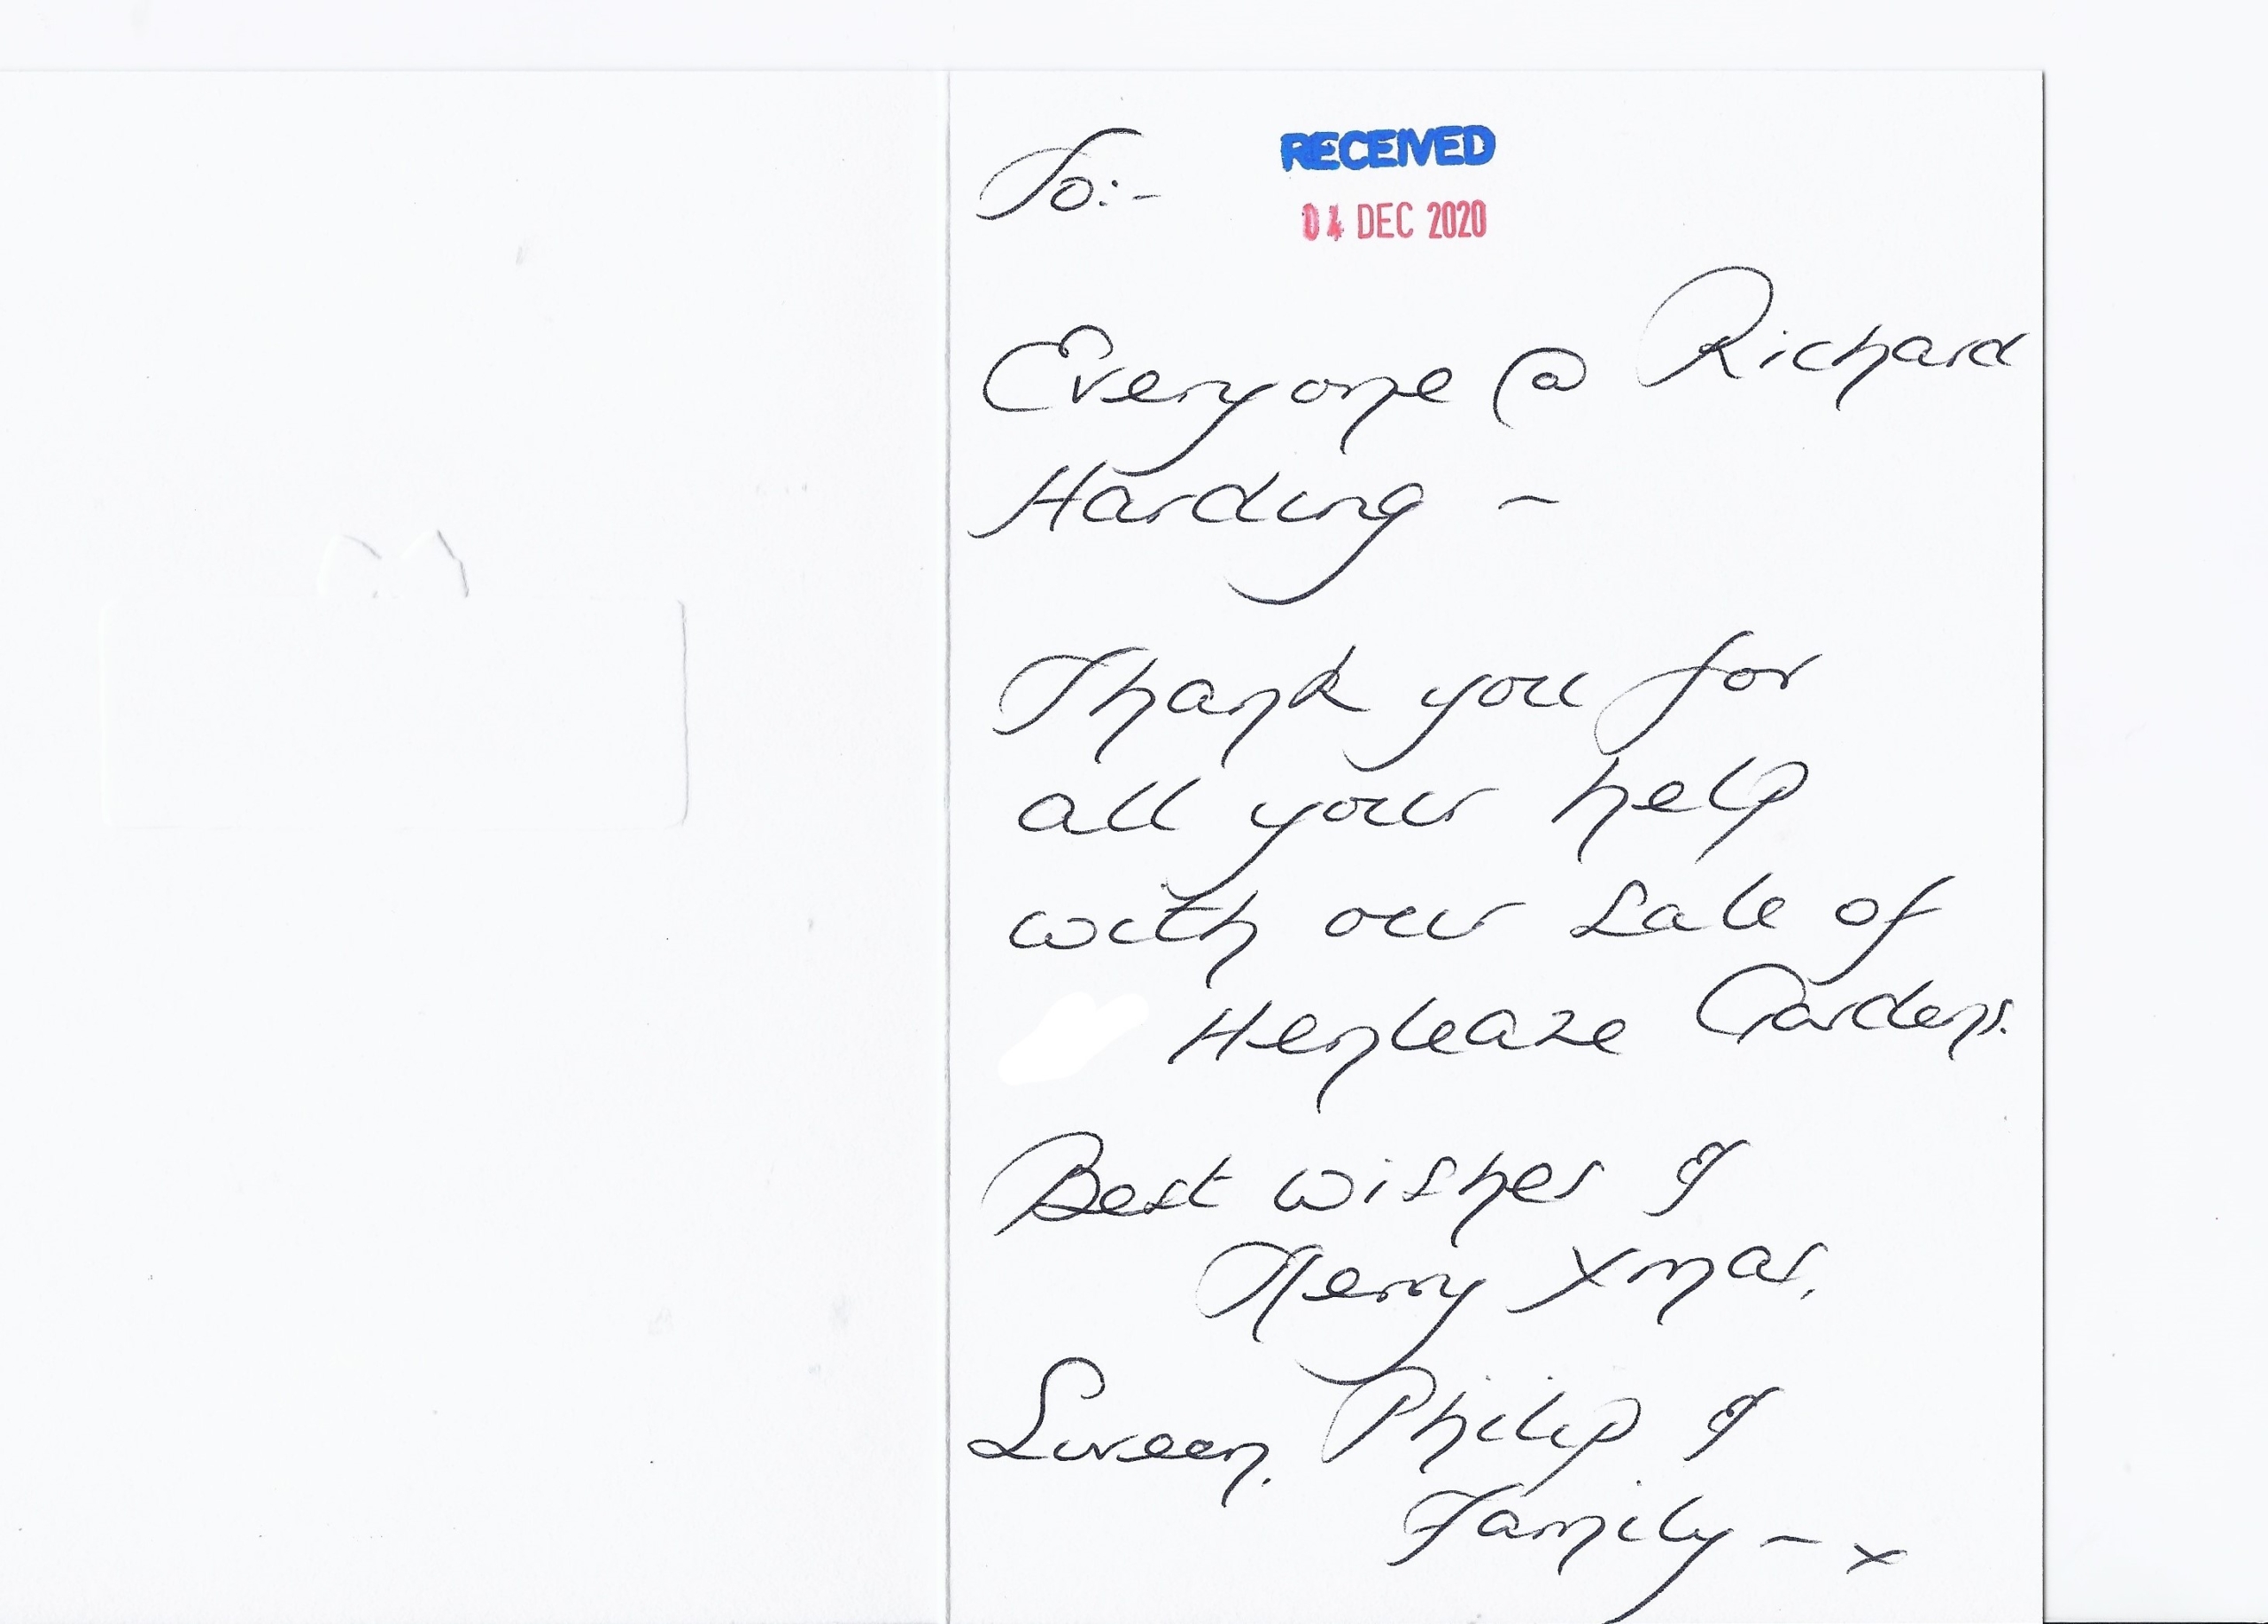 To:-
RECEIVED
04 DEC 2020
Everyone @ Richard
Harding -
Thank you for
all your help
with our sale of
Henleaze Gardens.
Best wishes &
Merry Xmas.
Philip &
Family - x